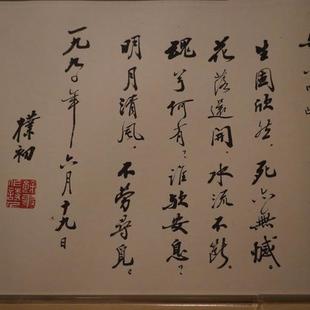 生固欣然、死亦無憾。
花落還開、水流不斷。
魂兮何有?誰歟安息?
明月清風、不勞尋覓。
一九九〇年六月十九日
樸初